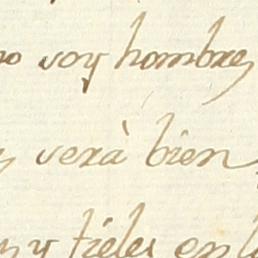 no soy hombre
verà bien
y fieles en